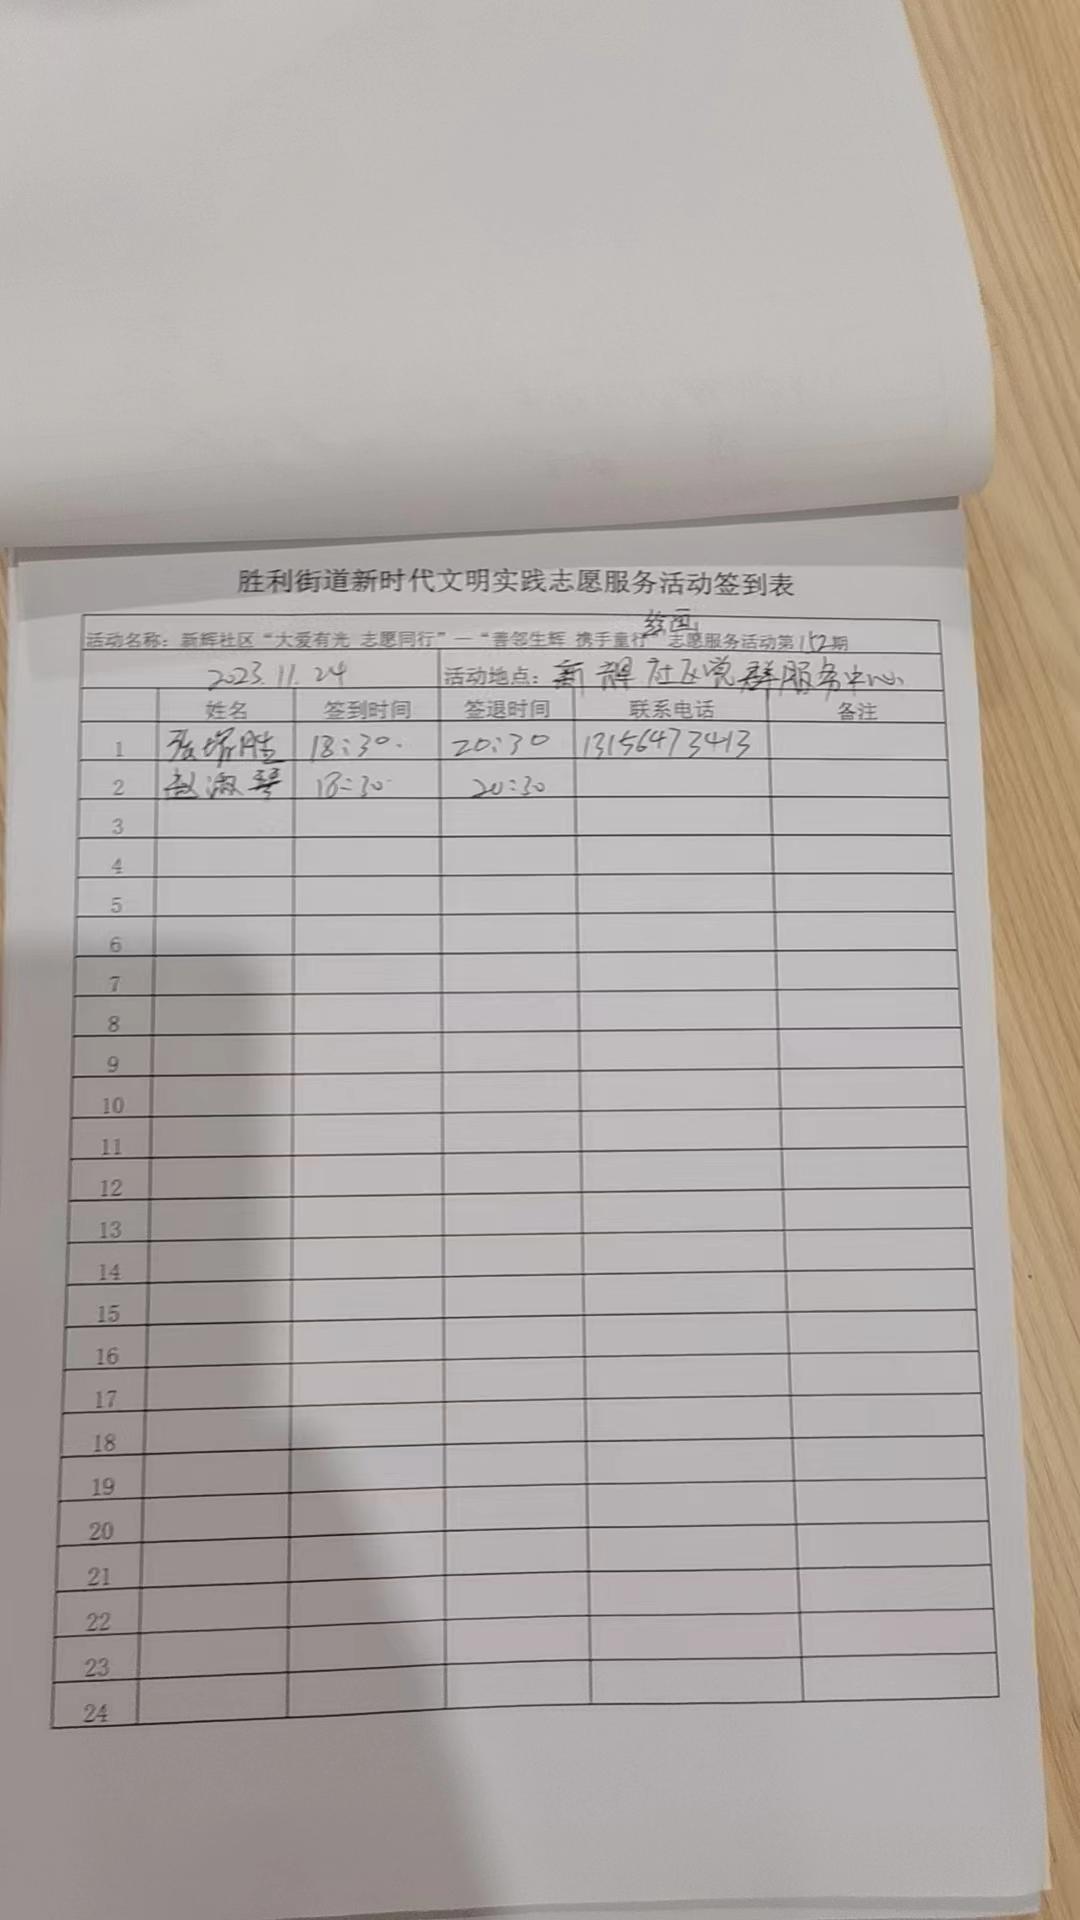 胜利街道新时代文明实践志愿服务活动签到表
绘画
活动名称：新辉社区“大爱有光 志愿同行”—“善邻生辉 携手童行”志愿服务活动第152期
2023.11.24 活动地点：新辉社区党群服务中心
姓名 签到时间 签退时间 联系电话 备注
1 18:30. 20:30 13156473413
2 赵淑琴 18:30 20:30
3
4
5
6
7
8
9
10
11
12
13
14
15
16
17
18
19
20
21
22
23
24